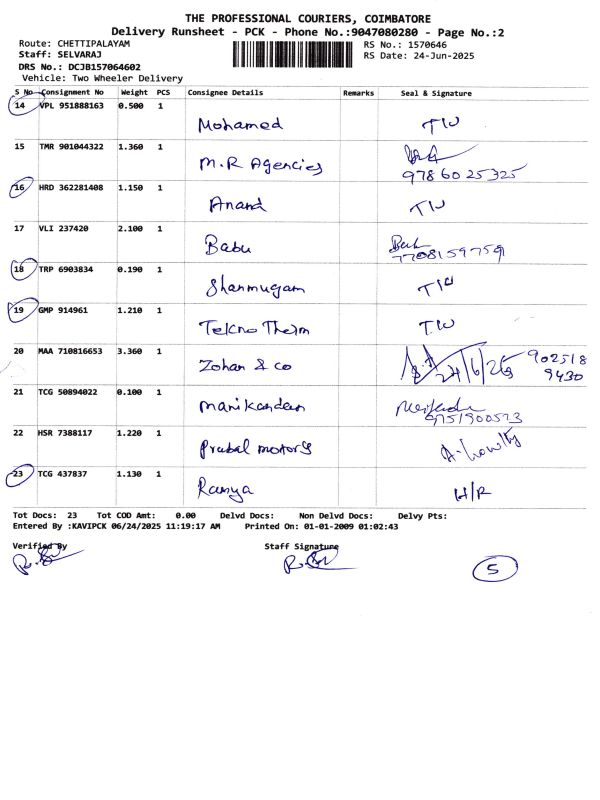 THE PROFESSIONAL COURIERS, COIMBATORE
Delivery Runsheet - PCK - Phone No.:9047080280 - Page No.:2
Route: CHETTIPALAYAM
Staff: SELVARAJ
RS No.: 1570646
RS Date: 24-Jun-2025
DRS No.: DCJB157064602
Vehicle: Two Wheeler Delivery
S No Consignment No Weight PCS Consignee Details Remarks Seal & Signature
14 VPL 951888163 0.500 1
Mohamed T/W
15 TMR 901044322 1.360 1
M.R Agencies 9786025325
16 HRD 362281408 1.150 1
Anand T/W
17 VLI 237420 2.100 1
Babu 7708159759
18 TRP 6903834 0.190 1
Shanmugam T/W
19 GMP 914961 1.210 1
Tekno Therm T/W
20 MAA 710816653 3.360 1
Zohan & co 24/6/25 902518
9430
21 TCG 50894022 0.100 1
Manikandan 9751900573
22 HSR 7388117 1.220 1
Prabal motors
23 TCG 437837 1.130 1
Ramya H/R
Tot Docs: 23 Tot COD Amt: 0.00 Delvd Docs: Non Delvd Docs: Delvy Pts:
Entered By :KAVIPCK 06/24/2025 11:19:17 AM Printed On: 01-01-2009 01:02:43
Verified By Staff Signature
5